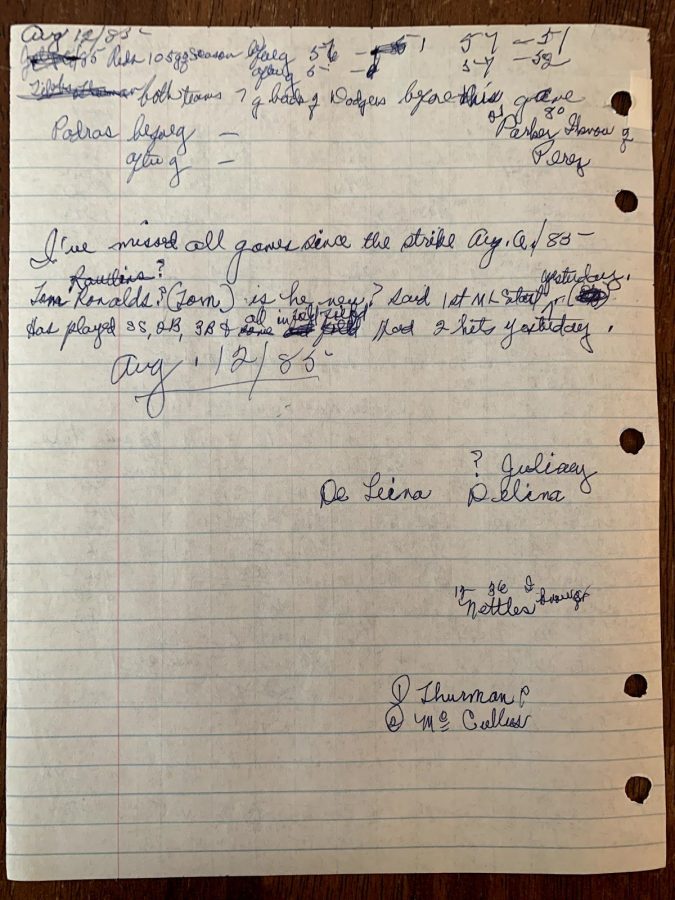 Aug 12/85
Reds 105 g season before g 56 - 51 57 - 51
after g 57 - 52
both teams 7 g back of Dodgers before this game
80
Padres before g -
Parker
after g -
Perez
I've missed all games since the strike Aug. 6./85 -
Rawlins?
yesterday.
Tom Ronalds? (Tom) is he new? said 1st ML Start
all infield
Has played SS, 2B, 3B & some Had 2 hits yesterday.
Aug. 12/85
? Juliaey
De Leina Delina
Nettles brought
① Thurman P
② Mc Cullers